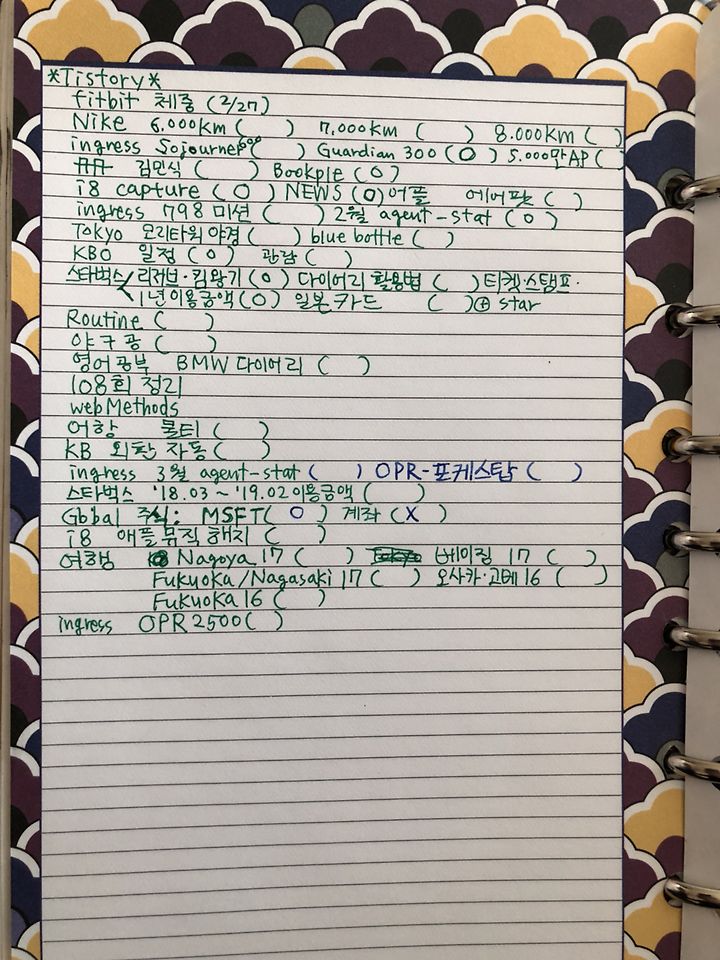 *Tistory*
fitbit 체중 (2/27)
Nike 6.000km ( ) 7.000km ( ) 8.000km ( )
ingress Sojourner ( ) Guardian 300 (O) 5.000만AP (
김민식 ( ) Bookple (O)
i8 capture (O) NEWS (O) 어플 에어팟 ( )
ingress 798 미션 ( ) 2월 agent-stat (O)
Tokyo 모리타워 야경 ( ) blue bottle ( )
KBO 일정 (O) 관람 ( )
스타벅스 리저브·킴왕기 (O) 다이어리 활용법 ( ) 티켓·스탬프·
1년이용금액 (O) 일본카드 ( ) ⊕ star
Routine ( )
야구공 ( )
영어공부 BMW 다이어리 ( )
108회 정리
webMethods
어항 물티 ( )
KB 외환 자동 ( )
ingress 3월 agent-stat ( ) OPR-포케스탑 ( )
스타벅스 '18.03 ~ '19.02 이용금액 ( )
Global 주식: MSFT( O ) 계좌 (X )
i8 애플뮤직 해지 ( )
여행 Nagoya 17 ( ) 베이징 17 ( )
Fukuoka/Nagasaki 17 ( ) 오사카·고베 16 ( )
Fukuoka 16 ( )
ingress OPR 2500 ( )